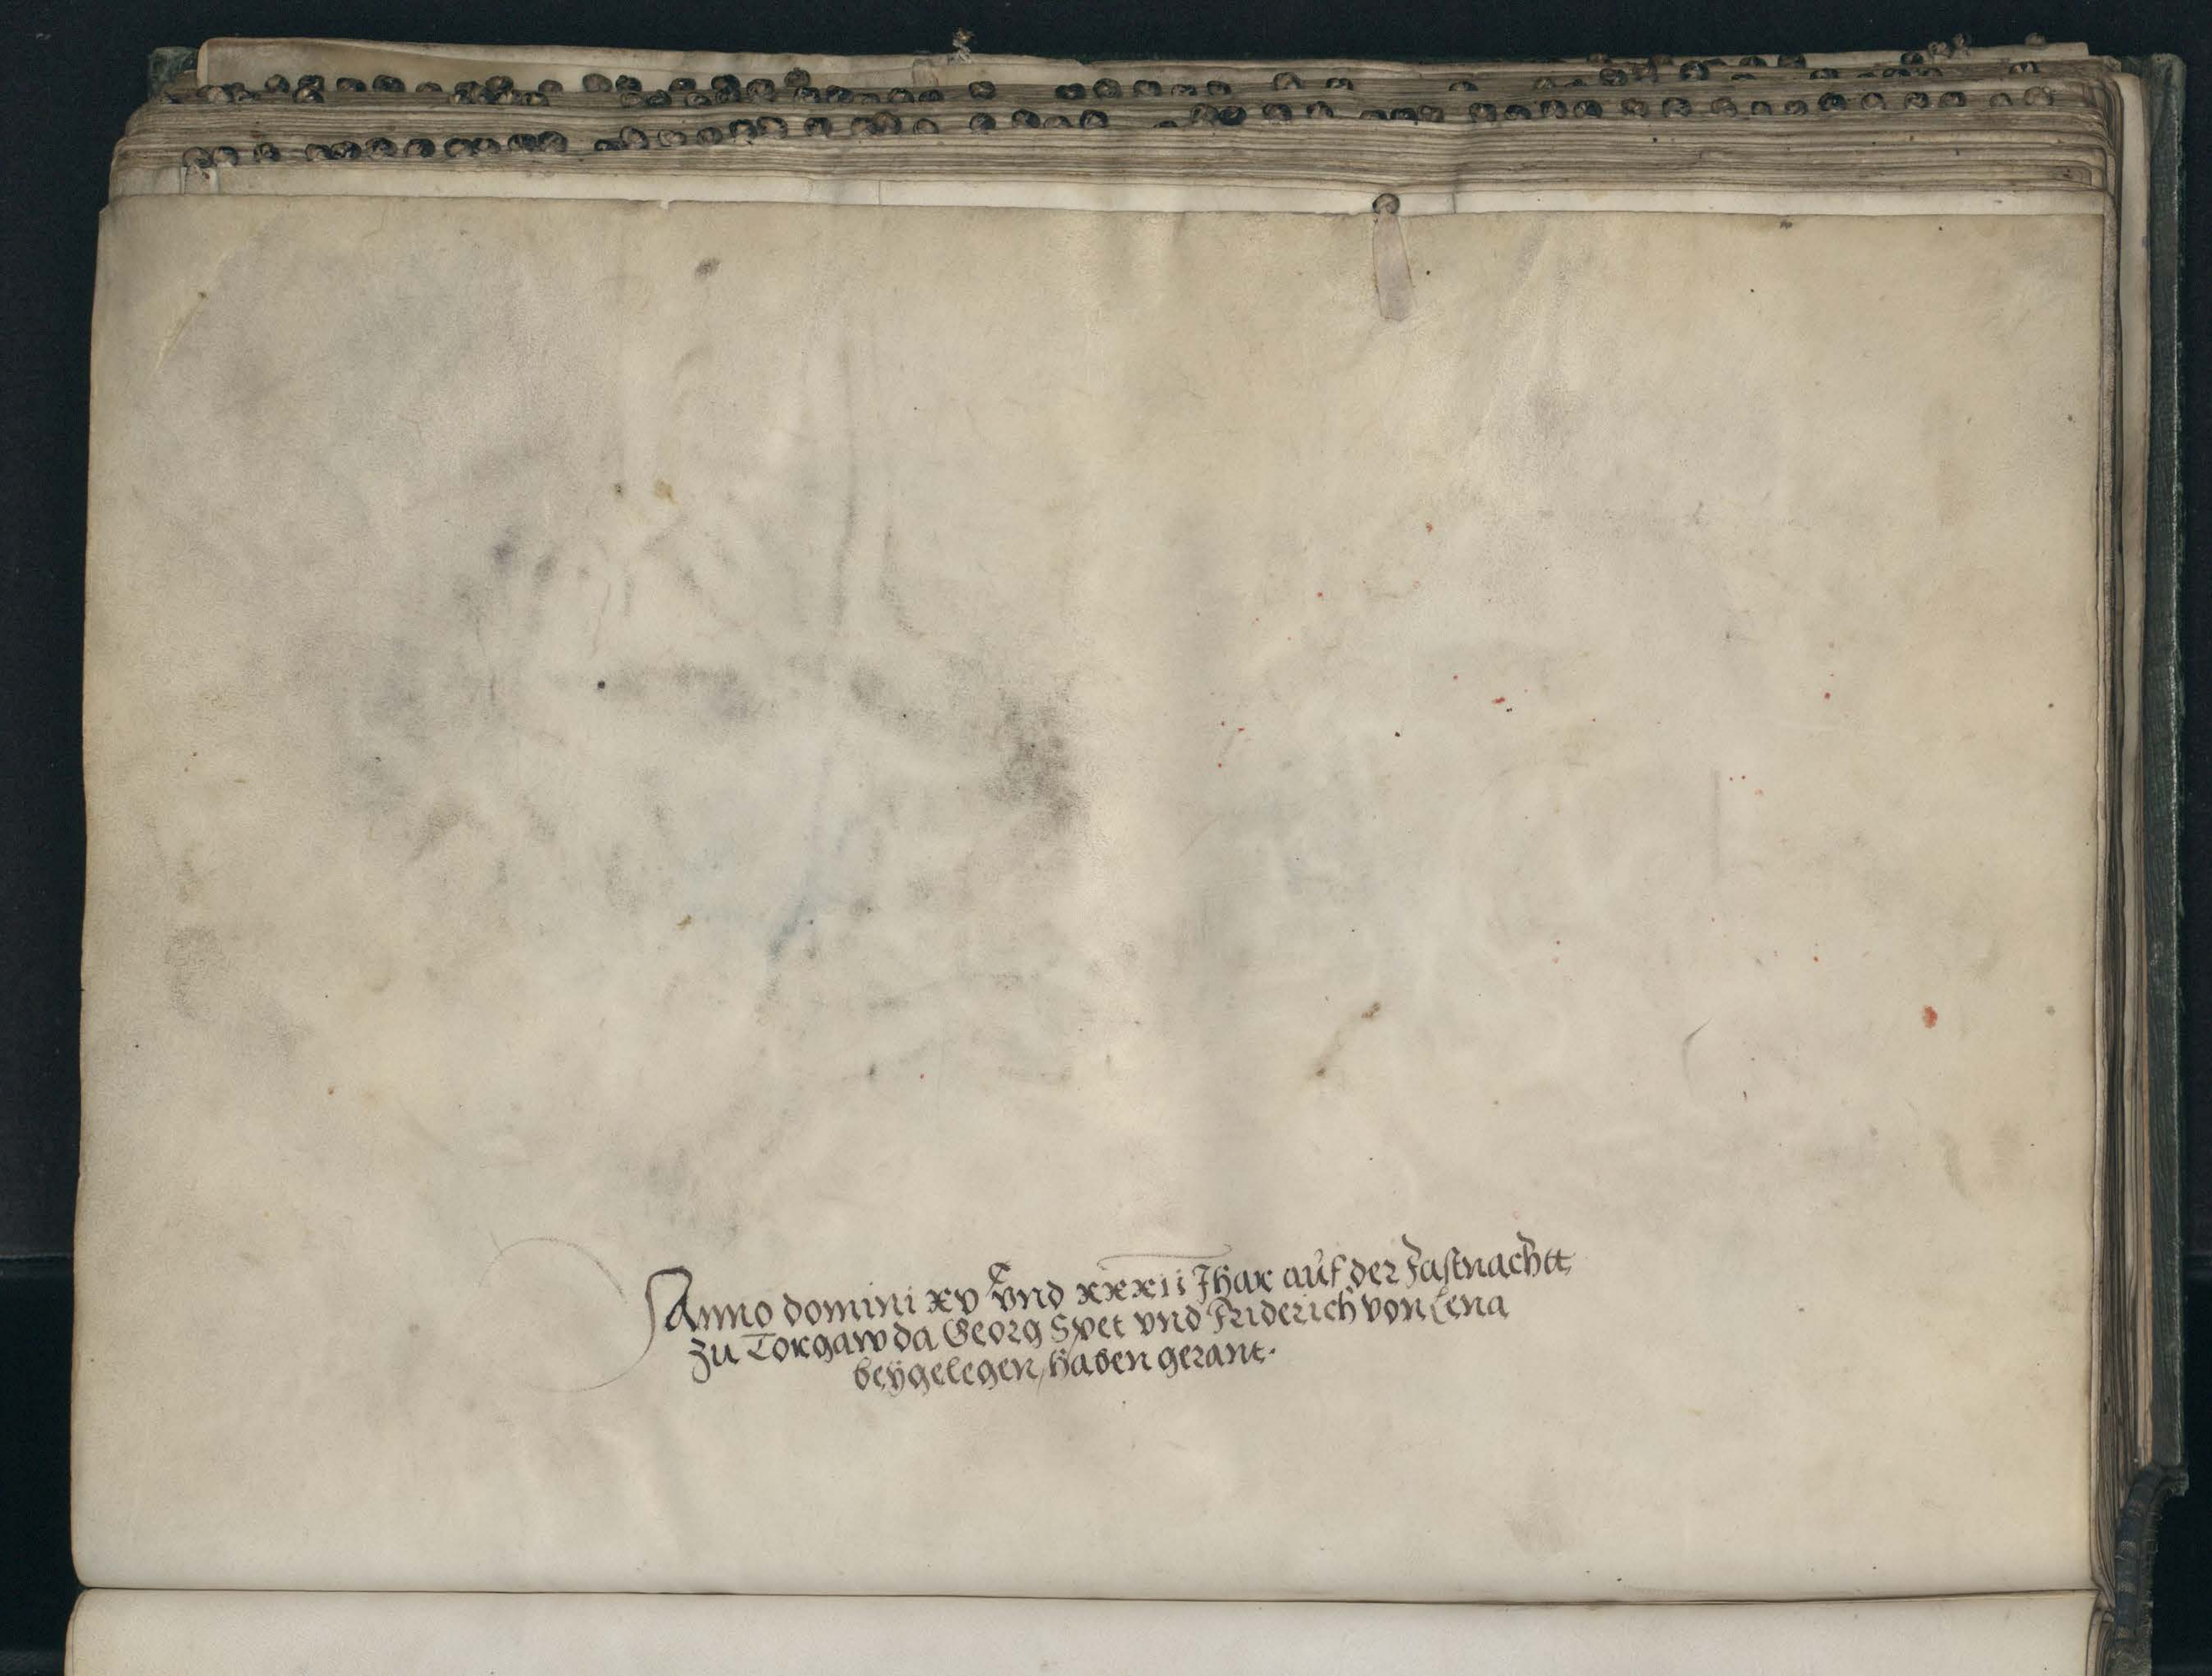 Anno domini xv^c vnd xxxii Jhar auf der Fastnachtt
zu Torgaw da Georg Spet vnd Friderich von Lena
beygelegen, haben gerant.